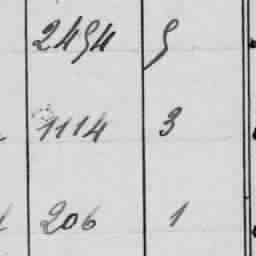 2494 9
1114 3
206 1